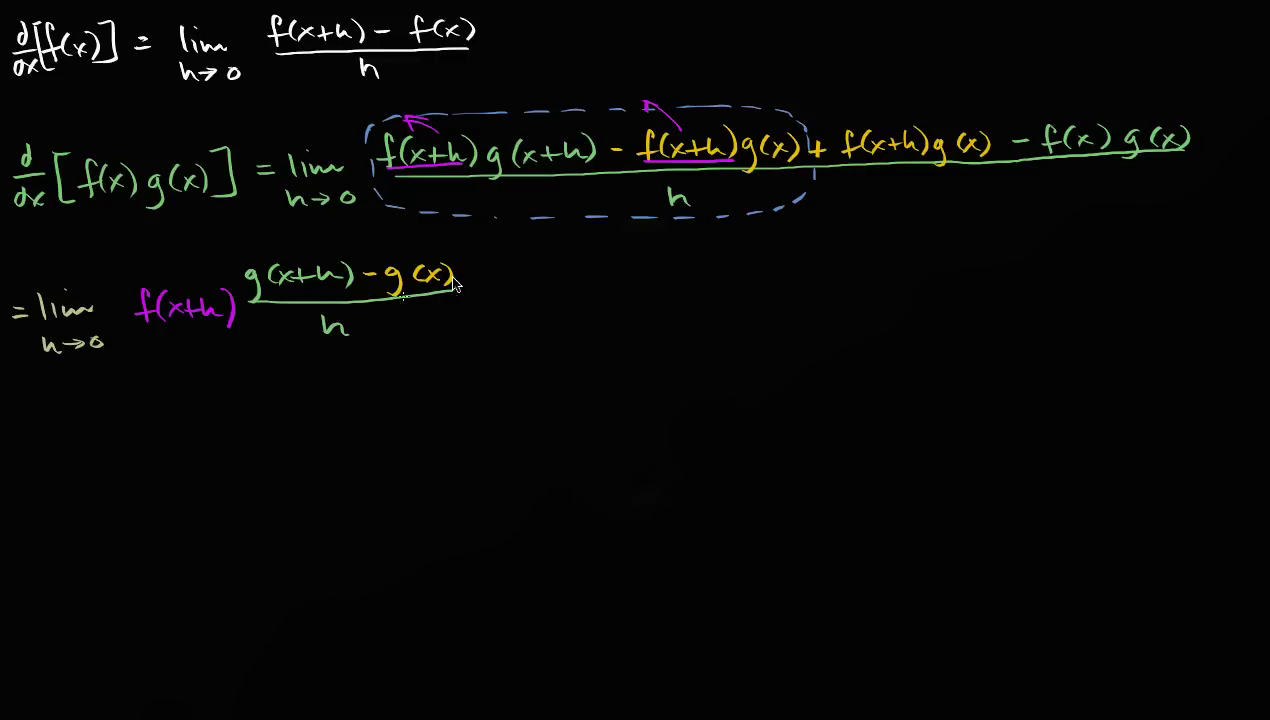 d/dx [f(x)] = lim h→0 (f(x+h) - f(x))/h
d/dx [f(x) g(x)] = lim h→0 (f(x+h) g(x+h) - f(x+h) g(x) + f(x+h) g(x) - f(x) g(x))/h
= lim h→0 f(x+h) (g(x+h) - g(x))/h